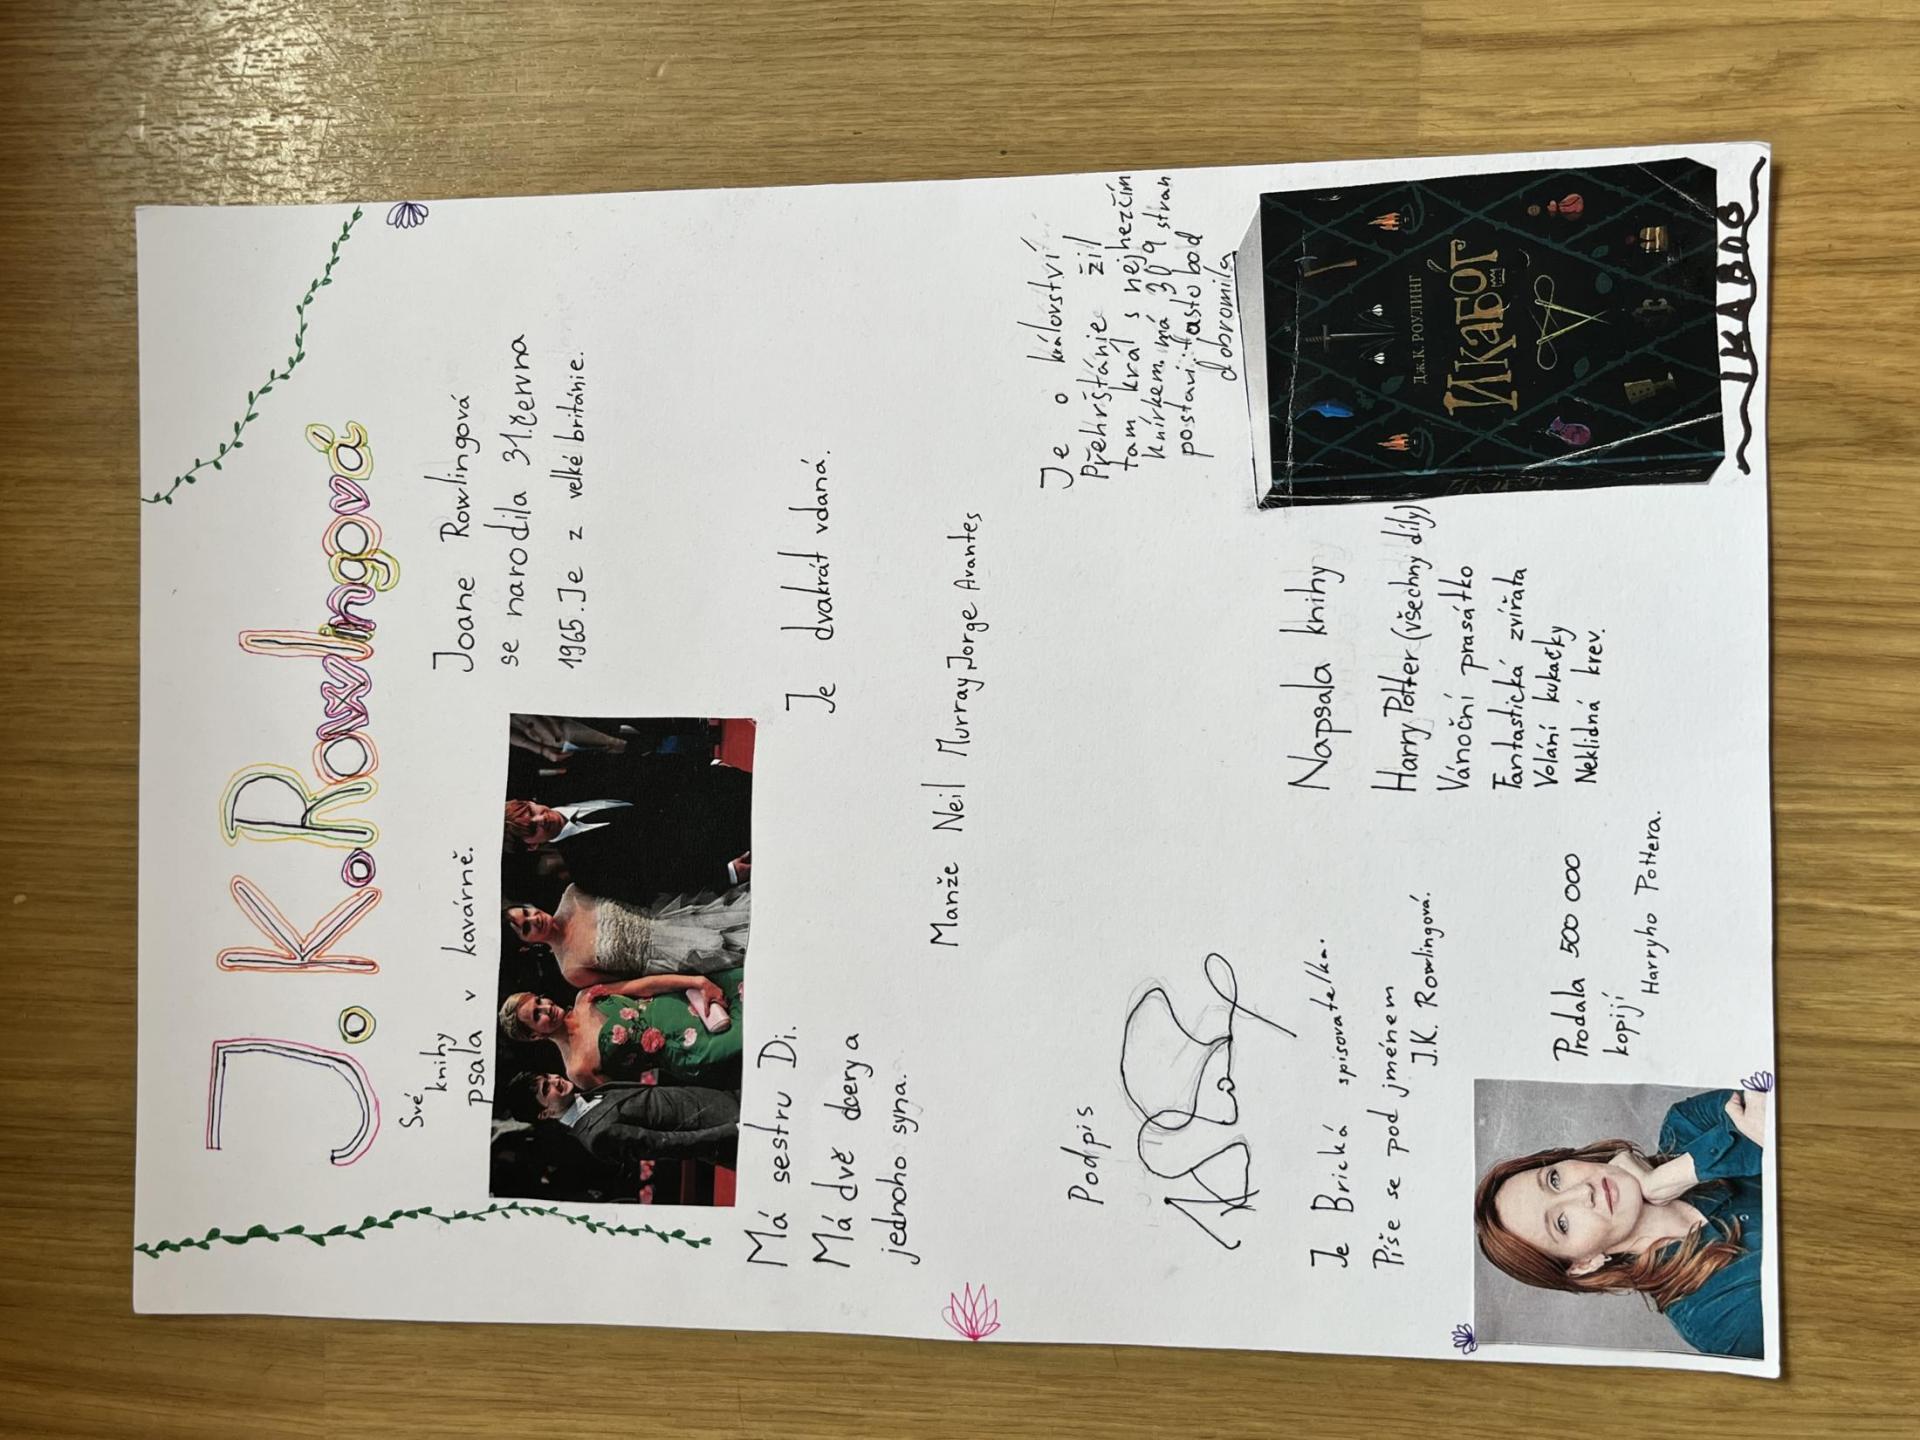 J.K.Rowlingová
Své
knihy
psala v kavárně.
Joane Rowlingová
se narodila 31.června
1965.Je z velké británie.
Má sestru Di.
Má dvě dcery a
jednoho syna.
Je dvakrát vdaná.
Manže Neil Murray,Jorge Arantes
Podpis
Je o království
Přehrštánie žil
tam král s nejhezčím
knírkem.má 309 stran
postavi:ťasto bod
dobromila
Дж.К РОУЛИНГ
ИКАБОГ
IKABOG
Je Brická spisovatelka.
Píše se pod jménem
J.K. Rowlingová.
Napsala knihy
Harry Potter (všechny díly)
Vánoční prasátko
Fantastická zvířata
Volání kukačky
Neklidná krev.
Prodala 500 000
kopijí
Harryho Pottera.